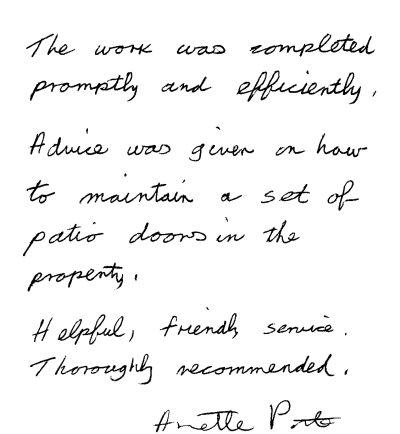 The work was completed
promptly and efficiently.
Advice was given on how
to maintain a set of
patio doors in the
property.
Helpful, friendly service.
Thoroughly recommended.
Anette